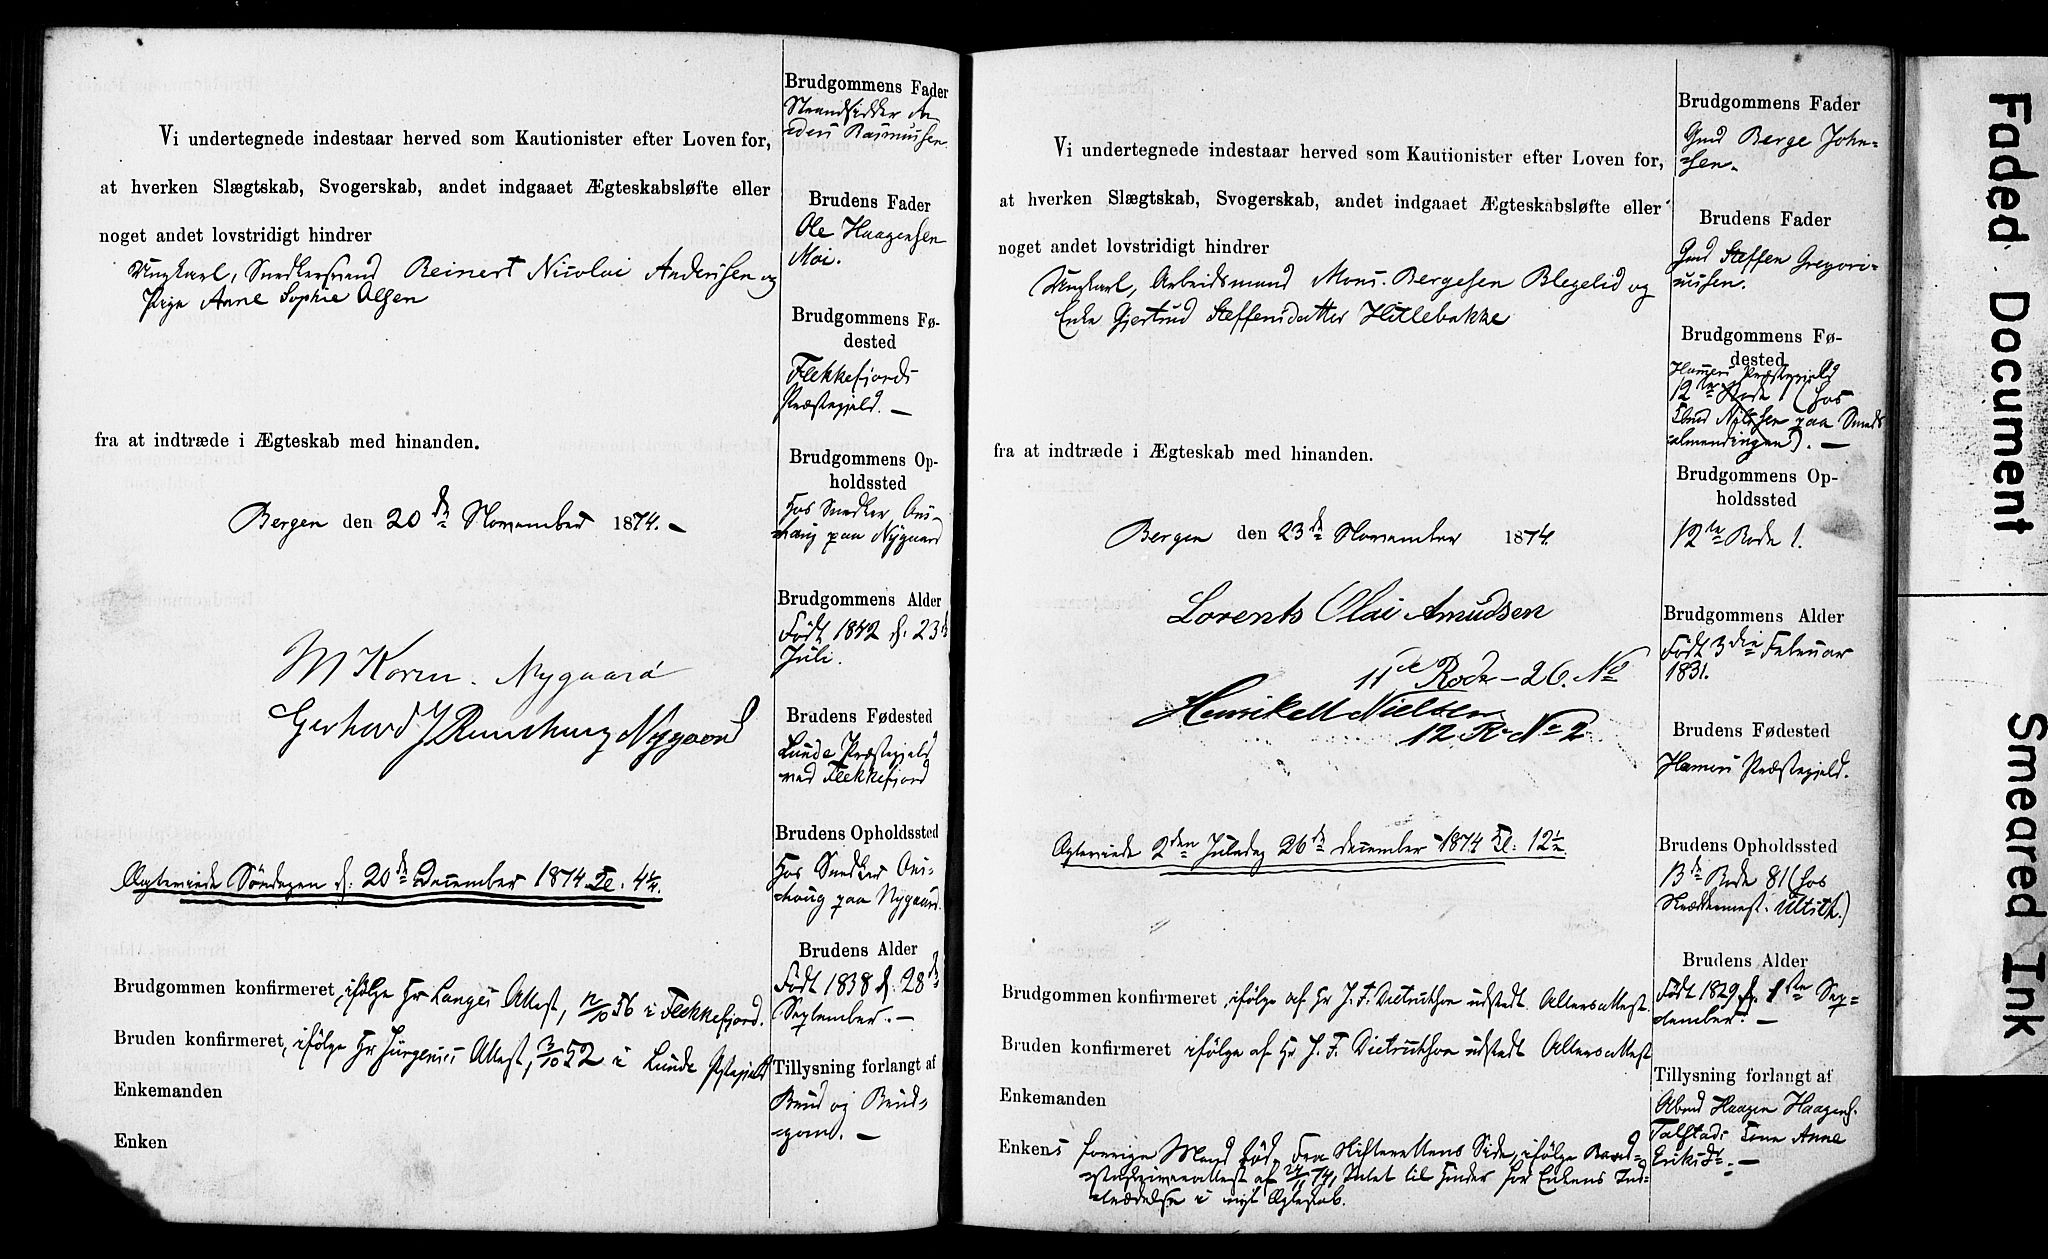 Vi undertegnede indestaar herved som Kautionister efter Loven for,
at hverken Slægtskab, Svogerskab, andet indgaaet Ægteskabsløfte eller
noget andet lovstridigt hindrer
Ungkarl, Snedkersvend Reinert Nicolai Andersen og
Pige Anne Sophie Olsen
fra at indtræde i Ægteskab med hinanden.
Bergen den 20de November 1874.
M Koren. Nygaard
Gerhard J Nygaard
Ægteviede Søndagen d. 20de December 1874 Kl. 4½.
Brudgommen konfirmeret, ifølge Hr Langes Attest, 56 i Flekkefjord.
Bruden konfirmeret, ifølge Hr Jürgenses Attest, 3/10 52 i Lunde Præstegjeld
Enkemanden
Enken
Brudgommens Fader
Strandsidder An-
ders Rasmussen
Brudens Fader
Ole Haagensen
Moi.
Brudgommens Fø-
dested
Flekkefjords
Præstegjeld. —
Brudgommens Op-
holdssted
Hos Snedker
paa Nygaard
Brudgommens Alder
Født 1842 d. 23de
Juli.
Brudens Fødested
Lunde Præstegjeld
ved Flekkefjord
Brudens Opholdssted
Hos Snedker
paa Nygaard.
Brudens Alder
Født 1838 d. 28de
September. —
Tillysning forlangt af
Brud og Brud-
gom. —
Vi undertegnede indestaar herved som Kautionister efter Loven for,
at hverken Slægtskab, Svogerskab, andet indgaaet Ægteskabsløfte eller
noget andet lovstridigt hindrer
Ungkarl, Arbeidsmand Mons Bergesen Blegelid og
Enke Gjertrud Steffensdatter Hillebakke
fra at indtræde i Ægteskab med hinanden.
Bergen den 23de November 1874.
Lorents Olai Amudsen
11te Rode - 26. No
Henrik Nielsen
12 R No 2
Ægteviede 2den Juledag 26de December 1874 Kl. 12½.
Brudgommen konfirmeret ifølge af Hr J. F. Dietrichson udstedt Altersattest.
Bruden konfirmeret ifølge af Hr J. F. Dietrichson udstedt Altersattest
Enkemanden
Enkens forrige Mand død. Fra Skifterettens Side, ifølge
attest af 24/11 74, Intet til Hinder for Enkens Ind-
trædelse i nyt Ægteskab.
Brudgommens Fader
Gmd Berge John-
sen.
Brudens Fader
Gmd Steffen Gregori-
ussen.
Brudgommens Fø-
dested
Hammers Præstegjeld
12te Rode 1 (hos
Nilssen paa Smeds
almendingen). —
Brudgommens Op-
holdssted
12te Rode 1.
Brudgommens Alder
Født 3die Februar
1831.
Brudens Fødested
Hammers Præstegjeld.
Brudens Opholdssted
13de Rode 81 (hos
Skræddermest. Ulrich.)
Brudens Alder
Født 1829 d. 1ste Sep-
tember. —
Tillysning forlangt af
Arbmd Haagen Haagens.
Talstads Kone Anne
Eriksdr. —
Faded Document
Smeared Ink